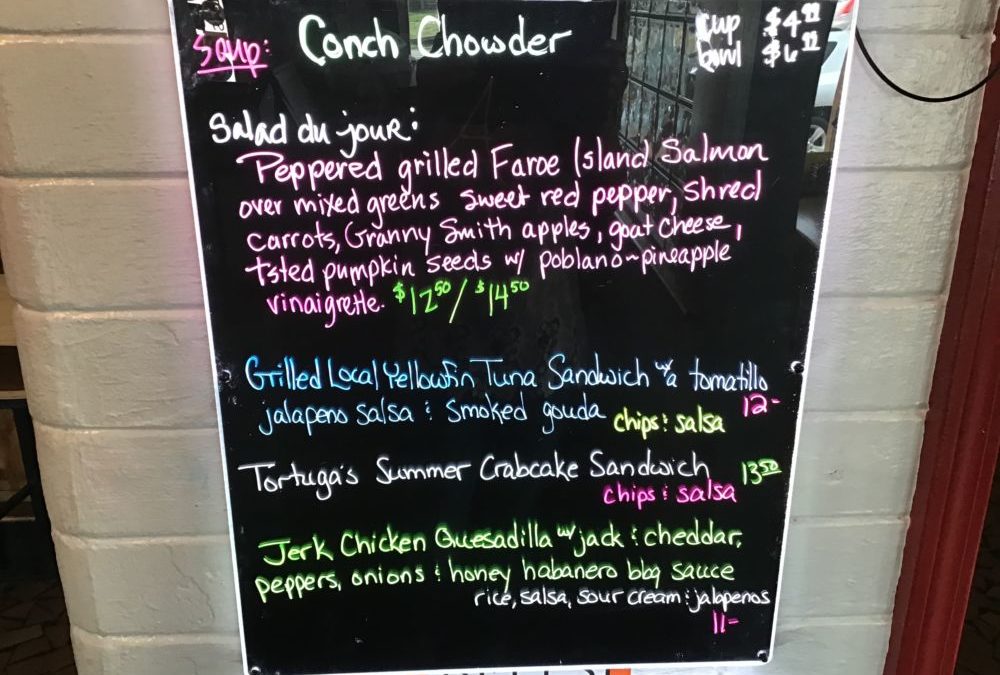 Soup: Conch Chowder cup $4.99
bowl $6.99
Salad du jour:
Peppered grilled Faroe Island Salmon
over mixed greens sweet red pepper, shred
carrots, Granny Smith apples, goat cheese,
tsted pumpkin seeds w/ poblano~pineapple
vinaigrette. $12.50 / $14.50
Grilled Local Yellowfin Tuna Sandwich w/ a tomatillo
jalapeno salsa & smoked gouda 12-
chips & salsa
Tortuga's Summer Crabcake Sandwich 13.50
chips & salsa
Jerk Chicken Quesadilla w/ jack & cheddar,
peppers, onions & honey habanero bbq sauce
rice, salsa, sour cream & jalapenos
11-